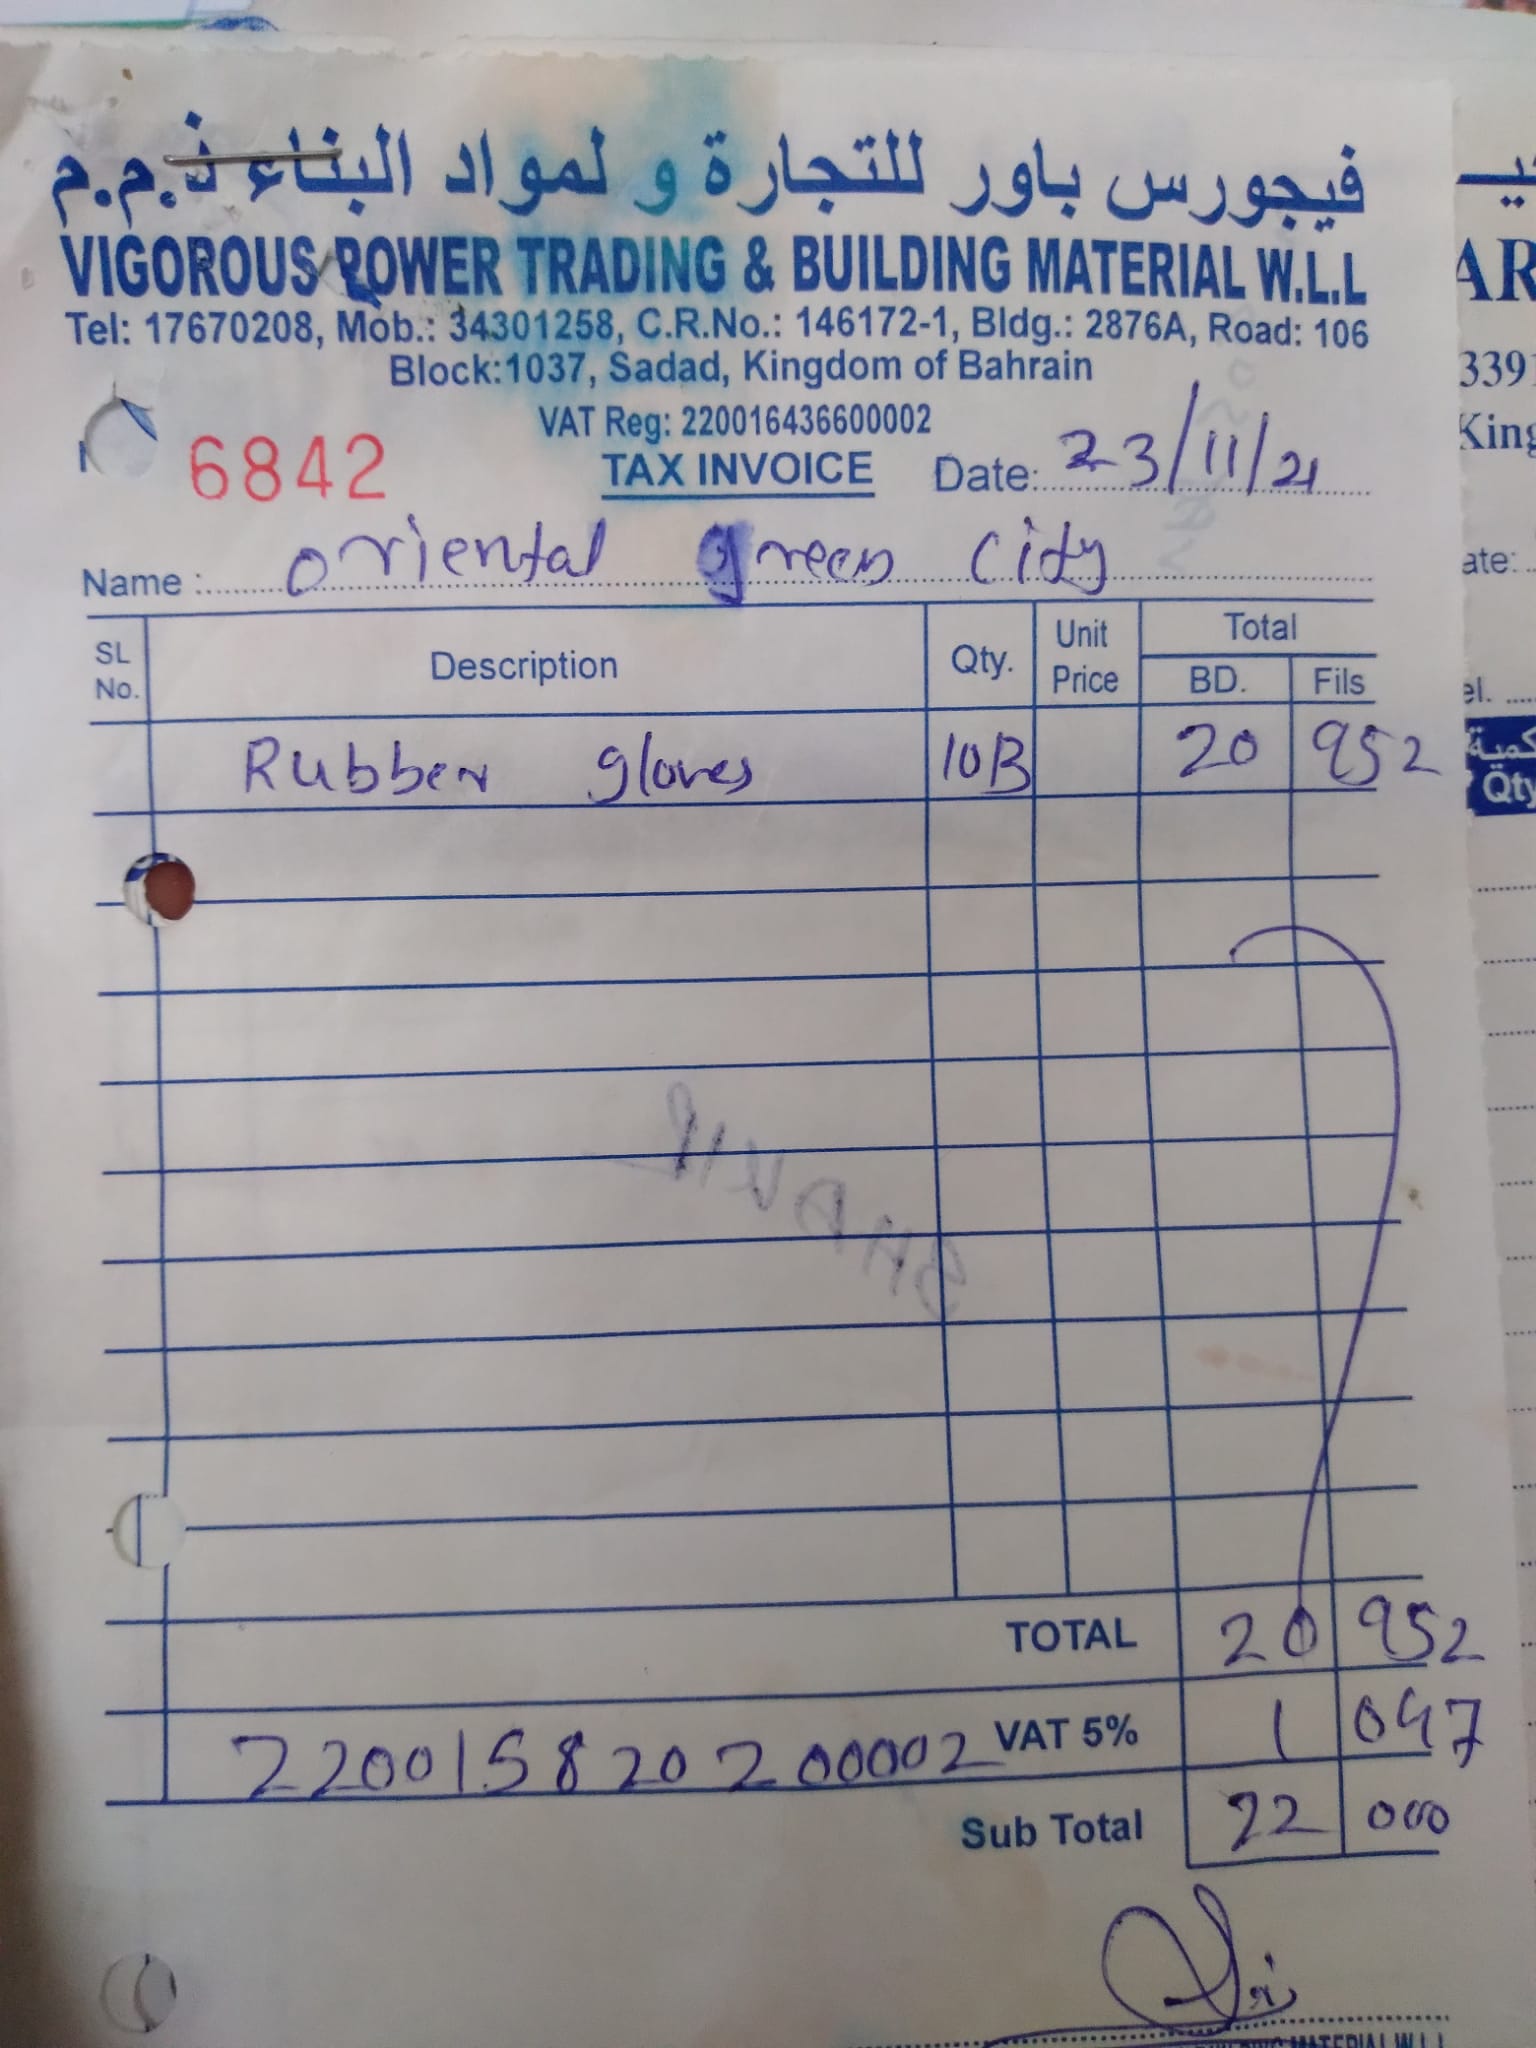 فيجورس باور للتجارة و لمواد البناء ذ.م.م
VIGOROUS POWER TRADING & BUILDING MATERIAL W.L.L
Tel: 17670208, Mob.: 34301258, C.R.No.: 146172-1, Bldg.: 2876A, Road: 106
Block:1037, Sadad, Kingdom of Bahrain
VAT Reg: 220016436600002
6842 TAX INVOICE Date: 23/11/21
Name : oriental green city
SL No. Description Qty. Unit Price Total
BD. Fils
Rubber gloves 10B 20 952
TOTAL 20 952
220015820200002 VAT 5% 1 047
Sub Total 22 000
AR
3391
King
ate:
el.
كمية
Qty